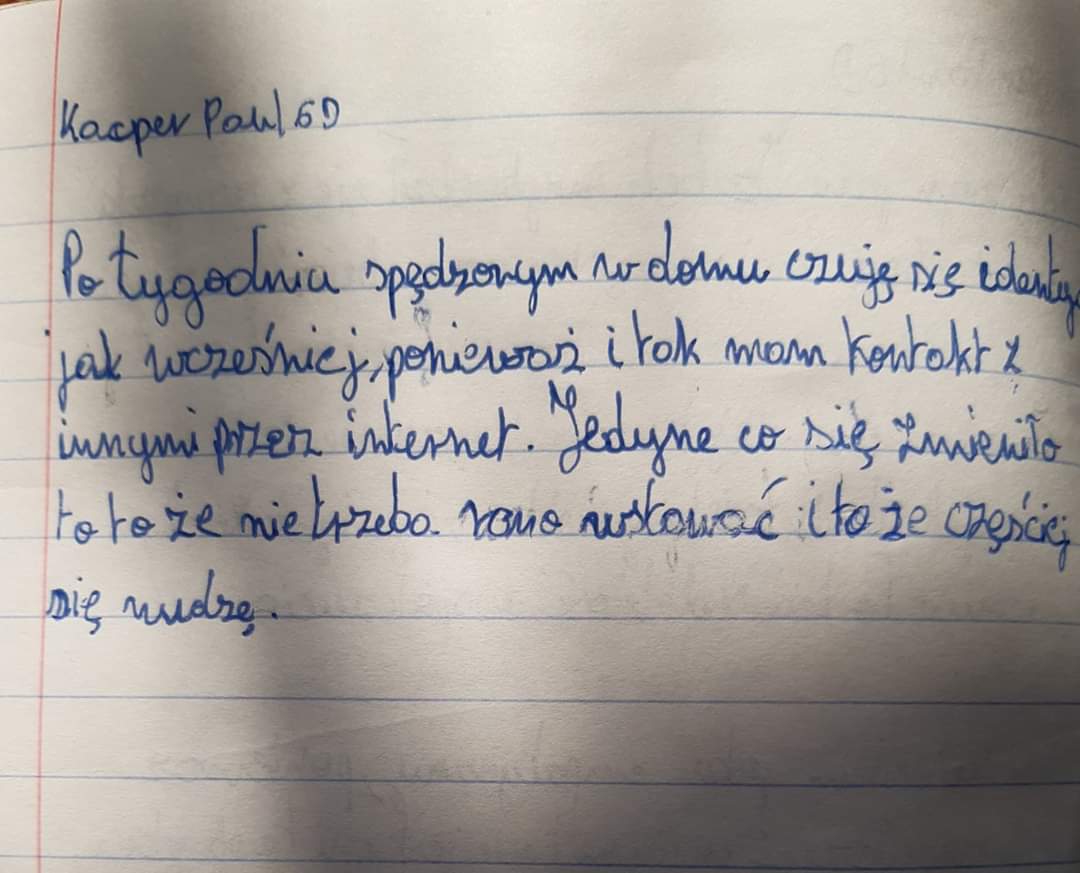 Kacper Pahl 6D
Po tygodniu spędzonym w domu czuję się identy
jak wcześniej, ponieważ i tak mam kontakt z
innymi przez internet. Jedyne co się zmieniło
to to że nie trzeba rano wstawać i to że częściej
się nudzę.